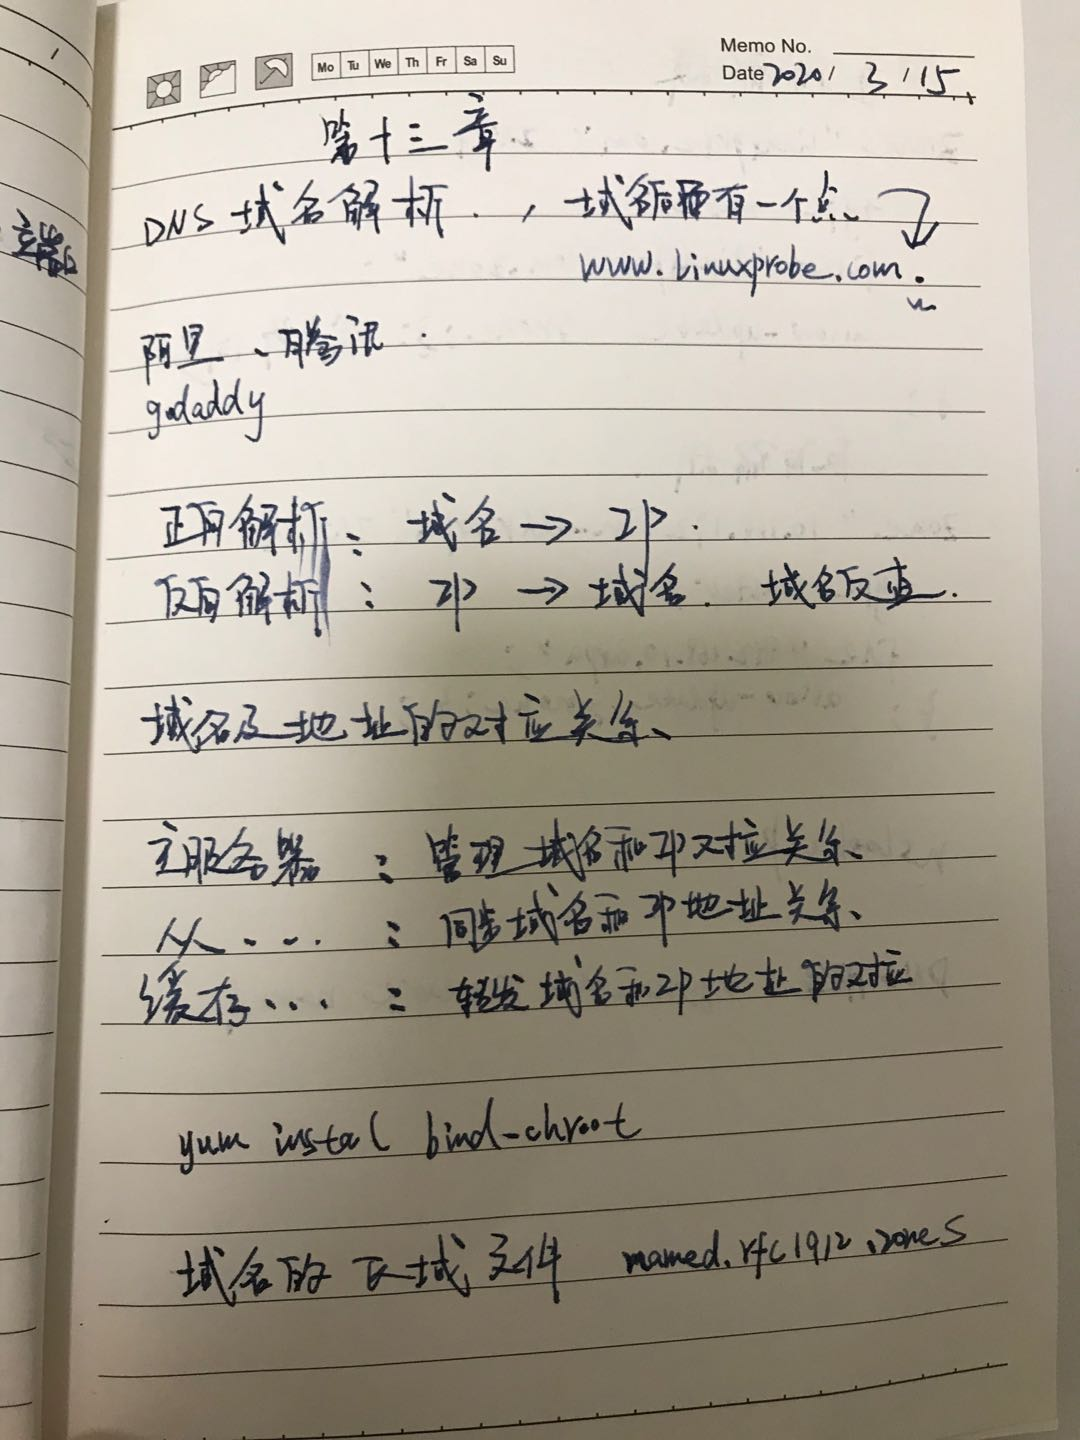 Mo Tu We Th Fr Sa Su
Memo No.
Date 2020 / 3 / 15
第十三章
DNS 域名解析. , 域名后面有一个点、
www.Linuxprobe.com.
阿里、腾讯.
godaddy
正向解析: 域名 → IP.
反向解析: IP → 域名. 域名反查.
域名及地址的对应关系、
主服务器: 管理域名和IP对应关系、
从....: 同步域名和IP地址关系、
缓存...: 转发域名和IP地址的对应
yum instal bind-chroot
域名的区域文件 named.rfc1912.zones